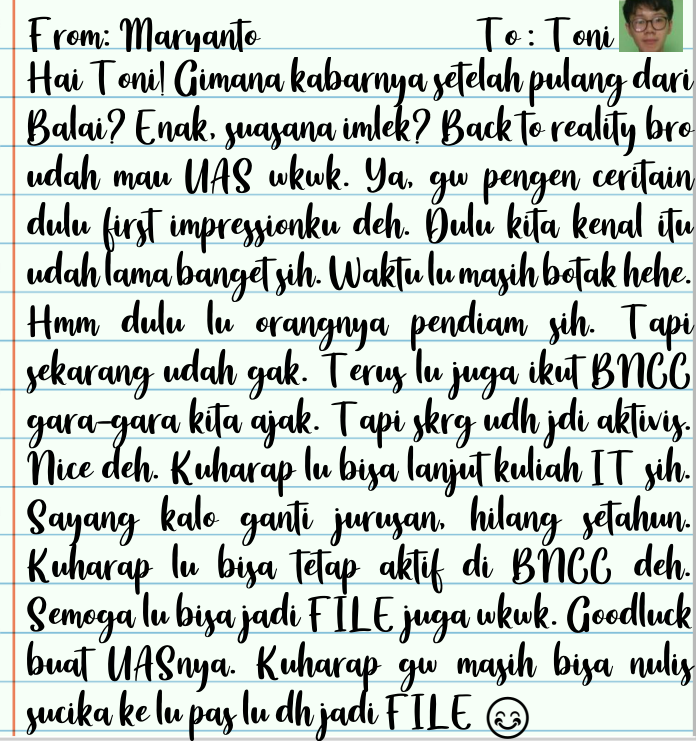 From: Maryanto To : Toni
Hai Toni! Gimana kabarnya setelah pulang dari
Balai? Enak, suasana imlek? Back to reality bro
udah mau UAS wkwk. Ya, gw pengen ceritain
dulu first impressionku deh. Dulu kita kenal itu
udah lama banget sih. Waktu lu masih botak hehe.
Hmm dulu lu orangnya pendiam sih. Tapi
sekarang udah gak. Terus lu juga ikut BNCC
gara-gara kita ajak. Tapi skrg udh jdi aktivis.
Nice deh. Kuharap lu bisa lanjut kuliah IT sih.
Sayang kalo ganti jurusan, hilang setahun.
Kuharap lu bisa tetap aktif di BNCC deh.
Semoga lu bisa jadi FILE juga wkwk. Goodluck
buat UASnya. Kuharap gw masih bisa nulis
sucika ke lu pas lu dh jadi FILE 😊